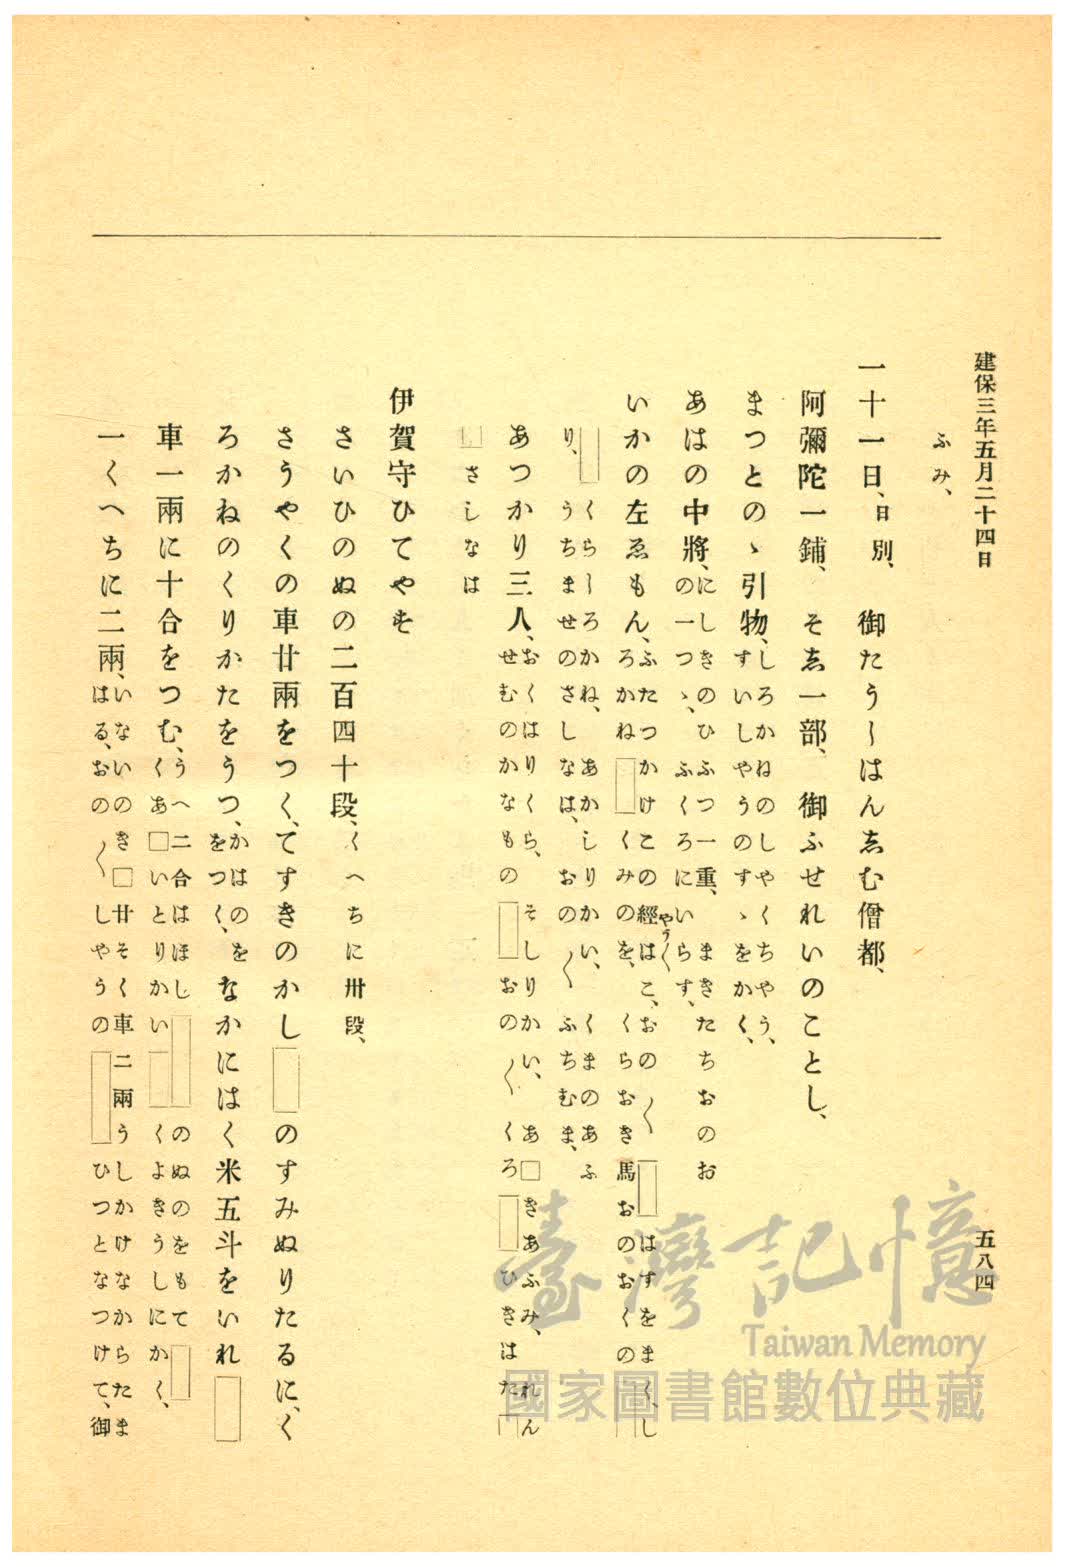 建保三年五月二十四日
五八四
ふみ、
一十一日、日別、御たう〳〵はんゑむ僧都、
阿彌陀一鋪、そゑ一部、御ふせれいのことし、
まつとのゝ引物、しろかねのしやくちやう、
すいしやうのすゝをかく、
あはの中將、にしきのひふつ一重、まきたちおのお
の一つゝ、ふくろにいらす、
いかの左ゑもん、ふたつかけこの經はこ、おの〳〵□はすをまく、し
やう〳〵
ろかね□くみのを、くらおき馬おのおくの□
□くら〳〵ろかね、あかしりかい、くまのあふ
り、うちませのさしなは、おの〳〵ふちむま、
あつかり三人、おくはりくら、そしりかい、あ□きあふみ、れん
せむのかなもの□おの〳〵くろ□ひきはた□
□さしなは
伊賀守ひてやす
さいひのぬの二百四十段、くへちに卅段、
さうやくの車廿兩をつく、てすきのかし□のすみぬりたるに、く
ろかねのくりかたをうつ、かはのを
をつく、なかにはく米五斗をいれ□
車一兩に十合をつむ、うへ二合はほし□のぬのをもて□
くあ□いとりかい□くよきうしにかく、
一くへちに二兩、いないのき□廿そく車二兩うしかけなからたま
はる、おの〳〵しやうの□ひつとなつけて、御
臺灣記憶
Taiwan Memory
國家圖書館數位典藏